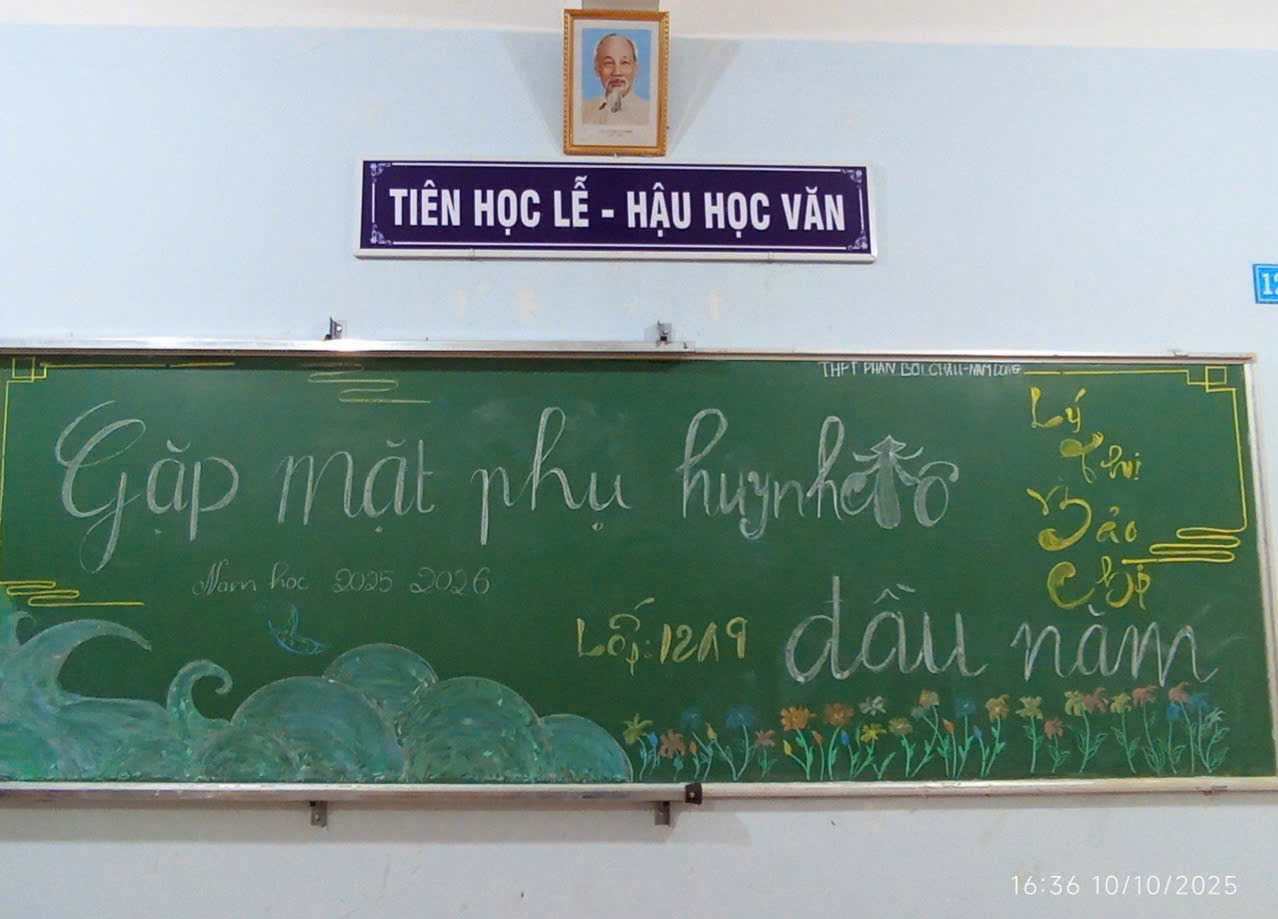 TIÊN HỌC LỄ - HẬU HỌC VĂN
12
THPT PHAN BỘI CHÂU-NAM DONG
Gặp mặt phụ huynh
Lý
Thị
Bảo
Chi
Năm học 2025 2026
Lớp: 12A9
đầu năm
16:36 10/10/2025